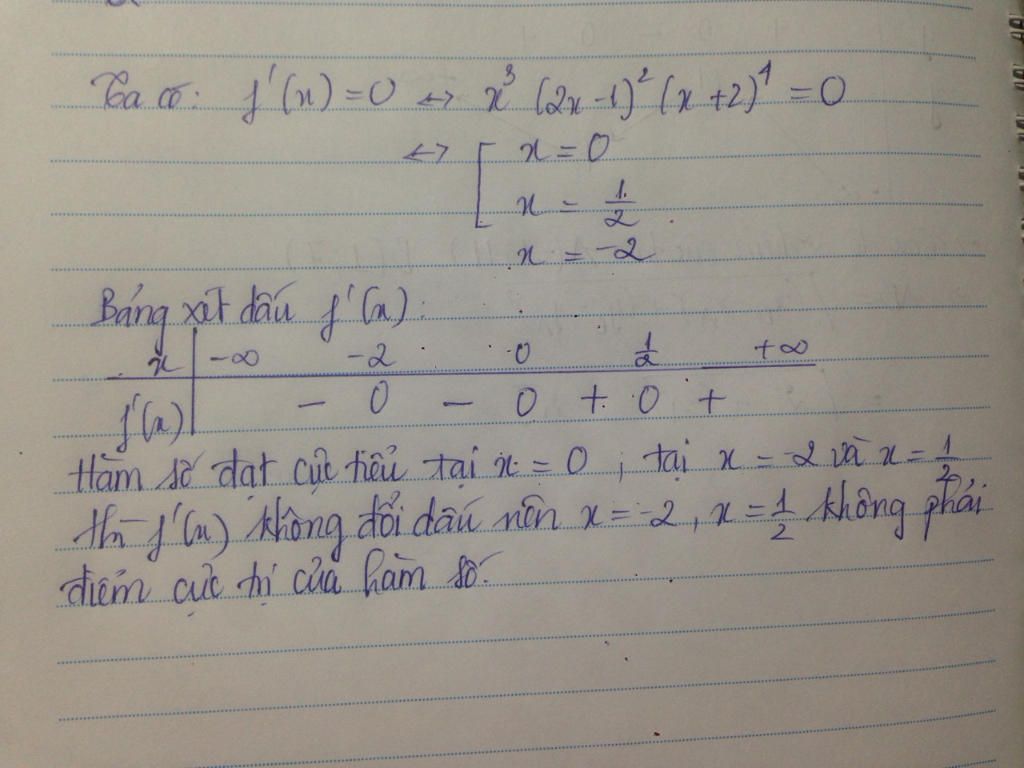 Ta có: f'(x) = 0 ↔ x³ (2x-1)² (x+2)⁴ = 0
↔ [ x = 0
x = 1/2
x = -2
Bảng xét dấu f'(x):
x | -∞ -2 0 1/2 +∞
f'(x) | - 0 - 0 + 0 +
Hàm số đạt cực tiểu tại x = 0 ; tại x = -2 và x = 1/2
thì f'(x) không đổi dấu nên x = -2, x = 1/2 không phải
điểm cực trị của hàm số.